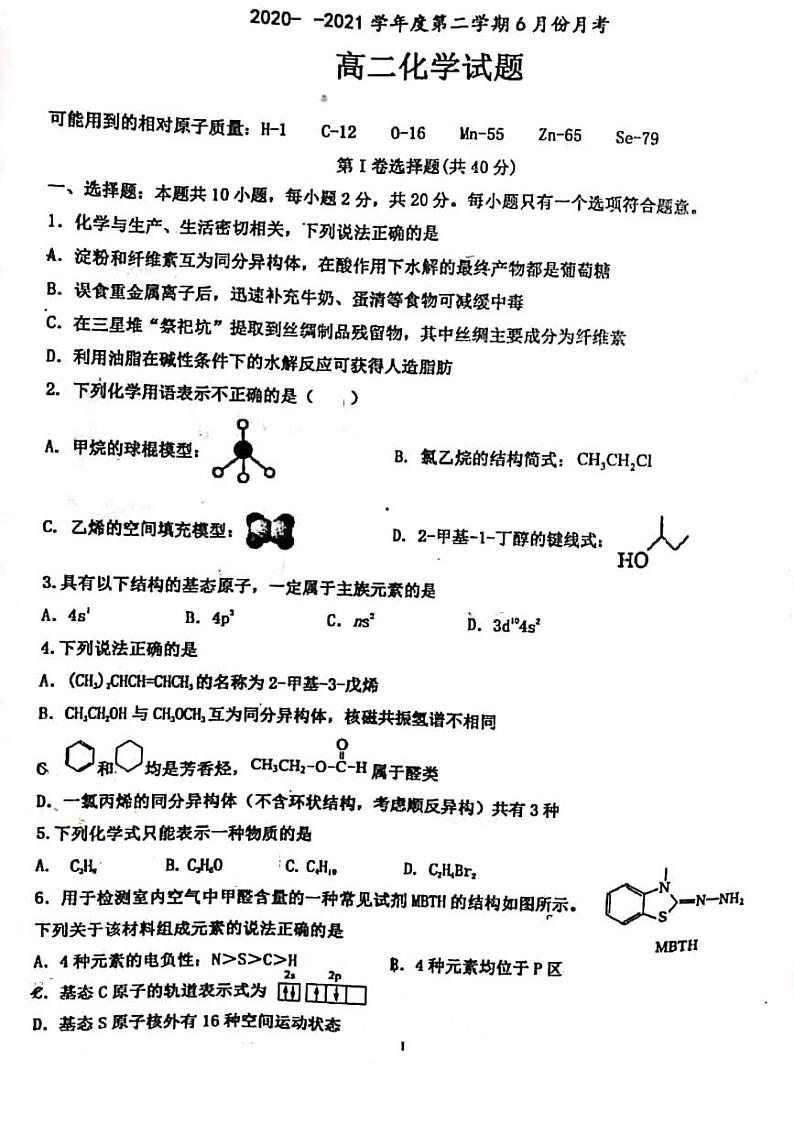 2020- -2021学年度第二学期6月份月考
高二化学试题
可能用到的相对原子质量：H-1 C-12 O-16 Mn-55 Zn-65 Se-79
第I卷选择题(共40分)
一、选择题：本题共10小题，每小题2分，共20分。每小题只有一个选项符合题意。
1．化学与生产、生活密切相关，下列说法正确的是
A．淀粉和纤维素互为同分异构体，在酸作用下水解的最终产物都是葡萄糖
B．误食重金属离子后，迅速补充牛奶、蛋清等食物可减缓中毒
C．在三星堆“祭祀坑”提取到丝绸制品残留物，其中丝绸主要成分为纤维素
D．利用油脂在碱性条件下的水解反应可获得人造脂肪
2．下列化学用语表示不正确的是（ ）
A．甲烷的球棍模型：
B．氯乙烷的结构简式：CH₃CH₂Cl
C．乙烯的空间填充模型：
D．2-甲基-1-丁醇的键线式：
HO
3.具有以下结构的基态原子，一定属于主族元素的是
A．4s¹ B．4p² C．ns² D．3d¹⁰4s²
4.下列说法正确的是
A．(CH₃)₂CHCH=CHCH₃的名称为2-甲基-3-戊烯
B．CH₃CH₂OH与CH₃OCH₃互为同分异构体，核磁共振氢谱不相同
C 和 均是芳香烃，CH₃CH₂-O-C-H属于醛类
O
D．一氯丙烯的同分异构体（不含环状结构，考虑顺反异构）共有3种
5.下列化学式只能表示一种物质的是
A． B．C₂H₆O C．C₄H₁₀ D．C₂H₄Br₂
6．用于检测室内空气中甲醛含量的一种常见试剂MBTH的结构如图所示。
下列关于该材料组成元素的说法正确的是
N S N-NH₂
MBTH
A．4种元素的电负性：N>S>C>H
B．4种元素均位于P区
2s 2p
C．基态C原子的轨道表示式为
D．基态S原子核外有16种空间运动状态
1